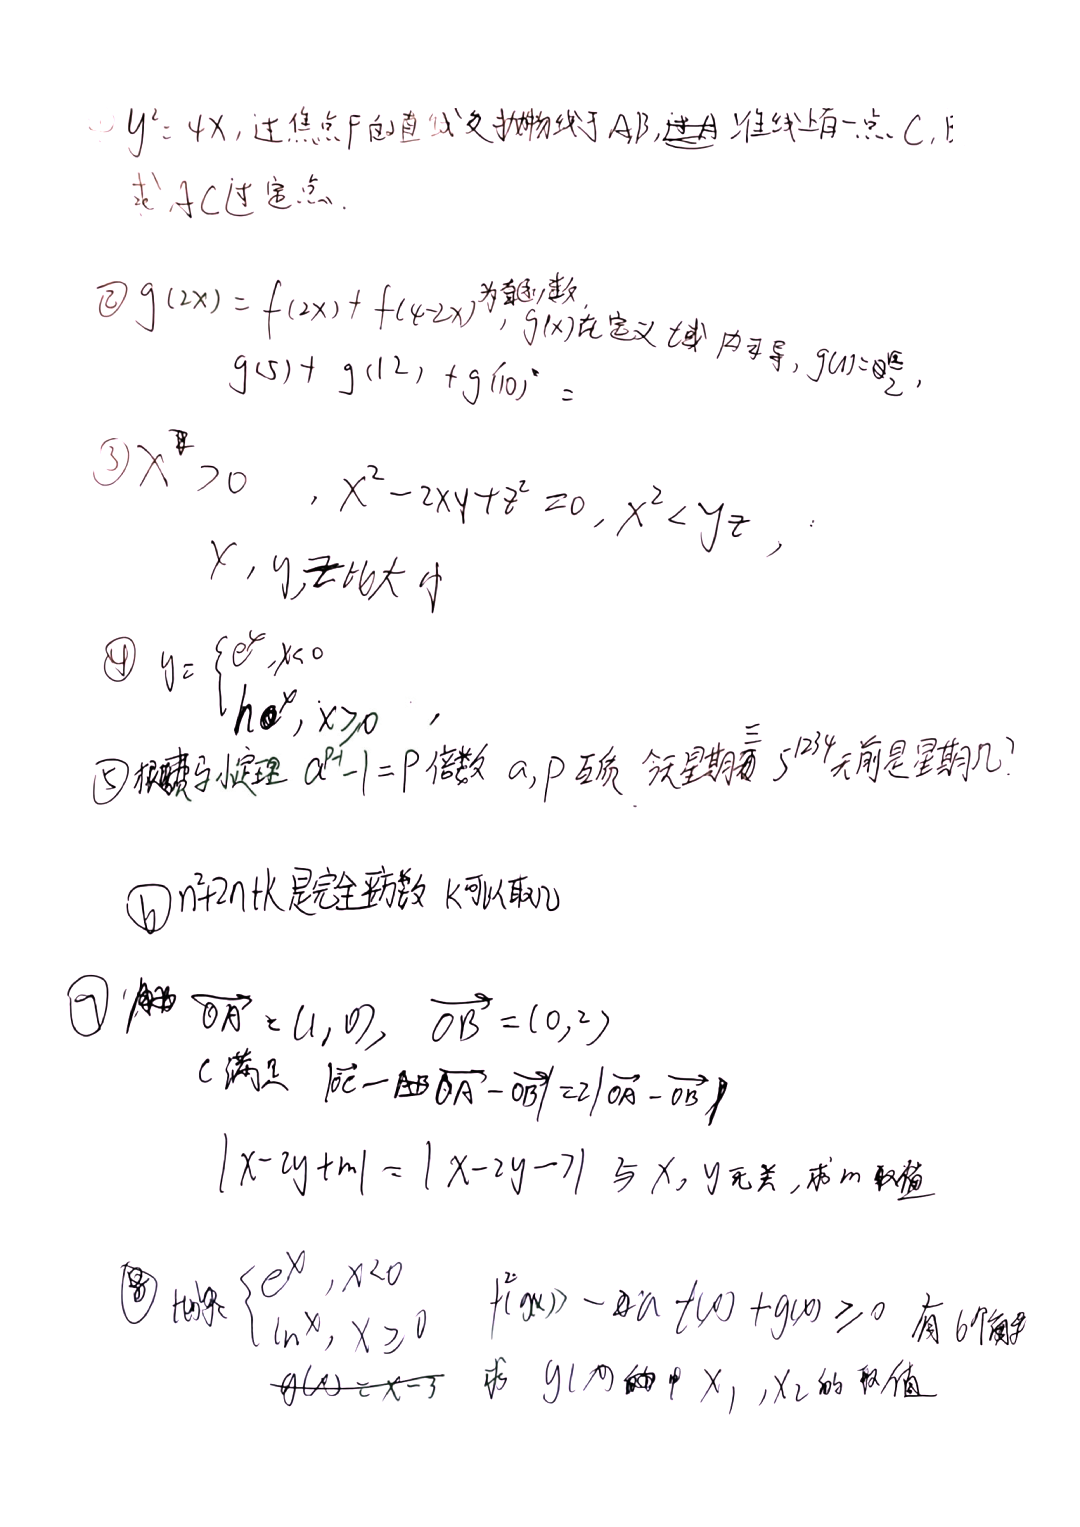 y²=4x,过焦点F的直线交抛物线于AB,准线上有一点C,
求AC过定点.
② g(2x)=f(2x)+f(4-2x)为 数, g(x)在定义域内可导, g(1)= 2,
g(5)+g(12)+g'(10)=
③ x>0 , x²-2xy+z²=0, x²<yz,
x,y,z比大小
④ y={eˣ,x<0
x≥0 ,
⑤ 根据费马小定理 aᵖ⁻¹-1=p倍数 a,p互质 今天星期三 5¹²³⁴天前是星期几?
⑥ n²+2n+k是完全平方数 k可以取几
OA=(1,0), OB=(0,2)
C满足 |OC-OA-OB|=2|OA-OB|
|x-2y+m|=|x-2y-7| 与x,y无关,求m取值
⑧ {eˣ,x<0 f²(g(x))-a f(x)+g(x)≥0 有6个
lnˣ,x≥0
g(x)=x-3 求g(x)中x₁,x₂的取值